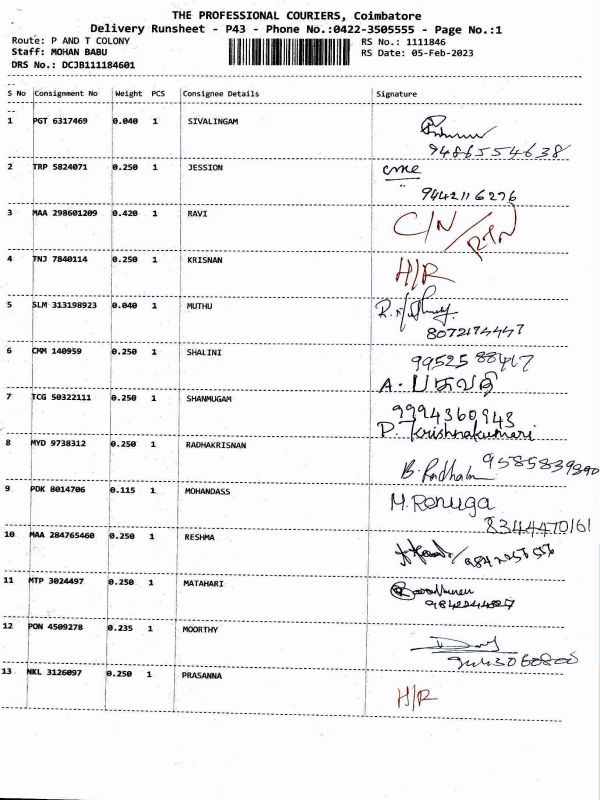 THE PROFESSIONAL COURIERS, Coimbatore
Delivery Runsheet - P43 - Phone No.:0422-3505555 - Page No.:1
Route: P AND T COLONY RS No.: 1111846
Staff: MOHAN BABU RS Date: 05-Feb-2023
DRS No.: DCJB111184601
S No Consignment No Weight PCS Consignee Details Signature
1 PGT 6317469 0.040 1 SIVALINGAM
9486554638
2 TRP 5824071 0.250 1 JESSION
9442116276
3 MAA 298601209 0.420 1 RAVI C/N/RTN
4 TNJ 7840114 0.250 1 KRISNAN H/R
5 SLM 313198923 0.040 1 MUTHU
8072174447
6 CMM 140959 0.250 1 SHALINI 9952588417
A.
7 TCG 50322111 0.250 1 SHANMUGAM 9994360943
P. Krishnakumari
8 MYD 9738312 0.250 1 RADHAKRISNAN 9585839390
B. Radha
9 PDK 8014706 0.115 1 MOHANDASS M. Renuga
8344470161
10 MAA 284765460 0.250 1 RESHMA
11 MTP 3024497 0.250 1 MATAHARI
12 PON 4509278 0.235 1 MOORTHY
13 NKL 3126097 0.250 1 PRASANNA H/R